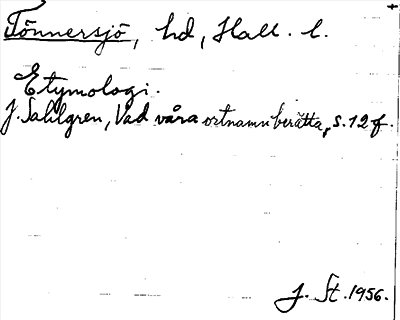 Tönnersjö, hd, Hall. l.
Etymologi.
J. Sahlgren, Vad våra ortnamn berätta, s. 12 f.
J. St. 1956.